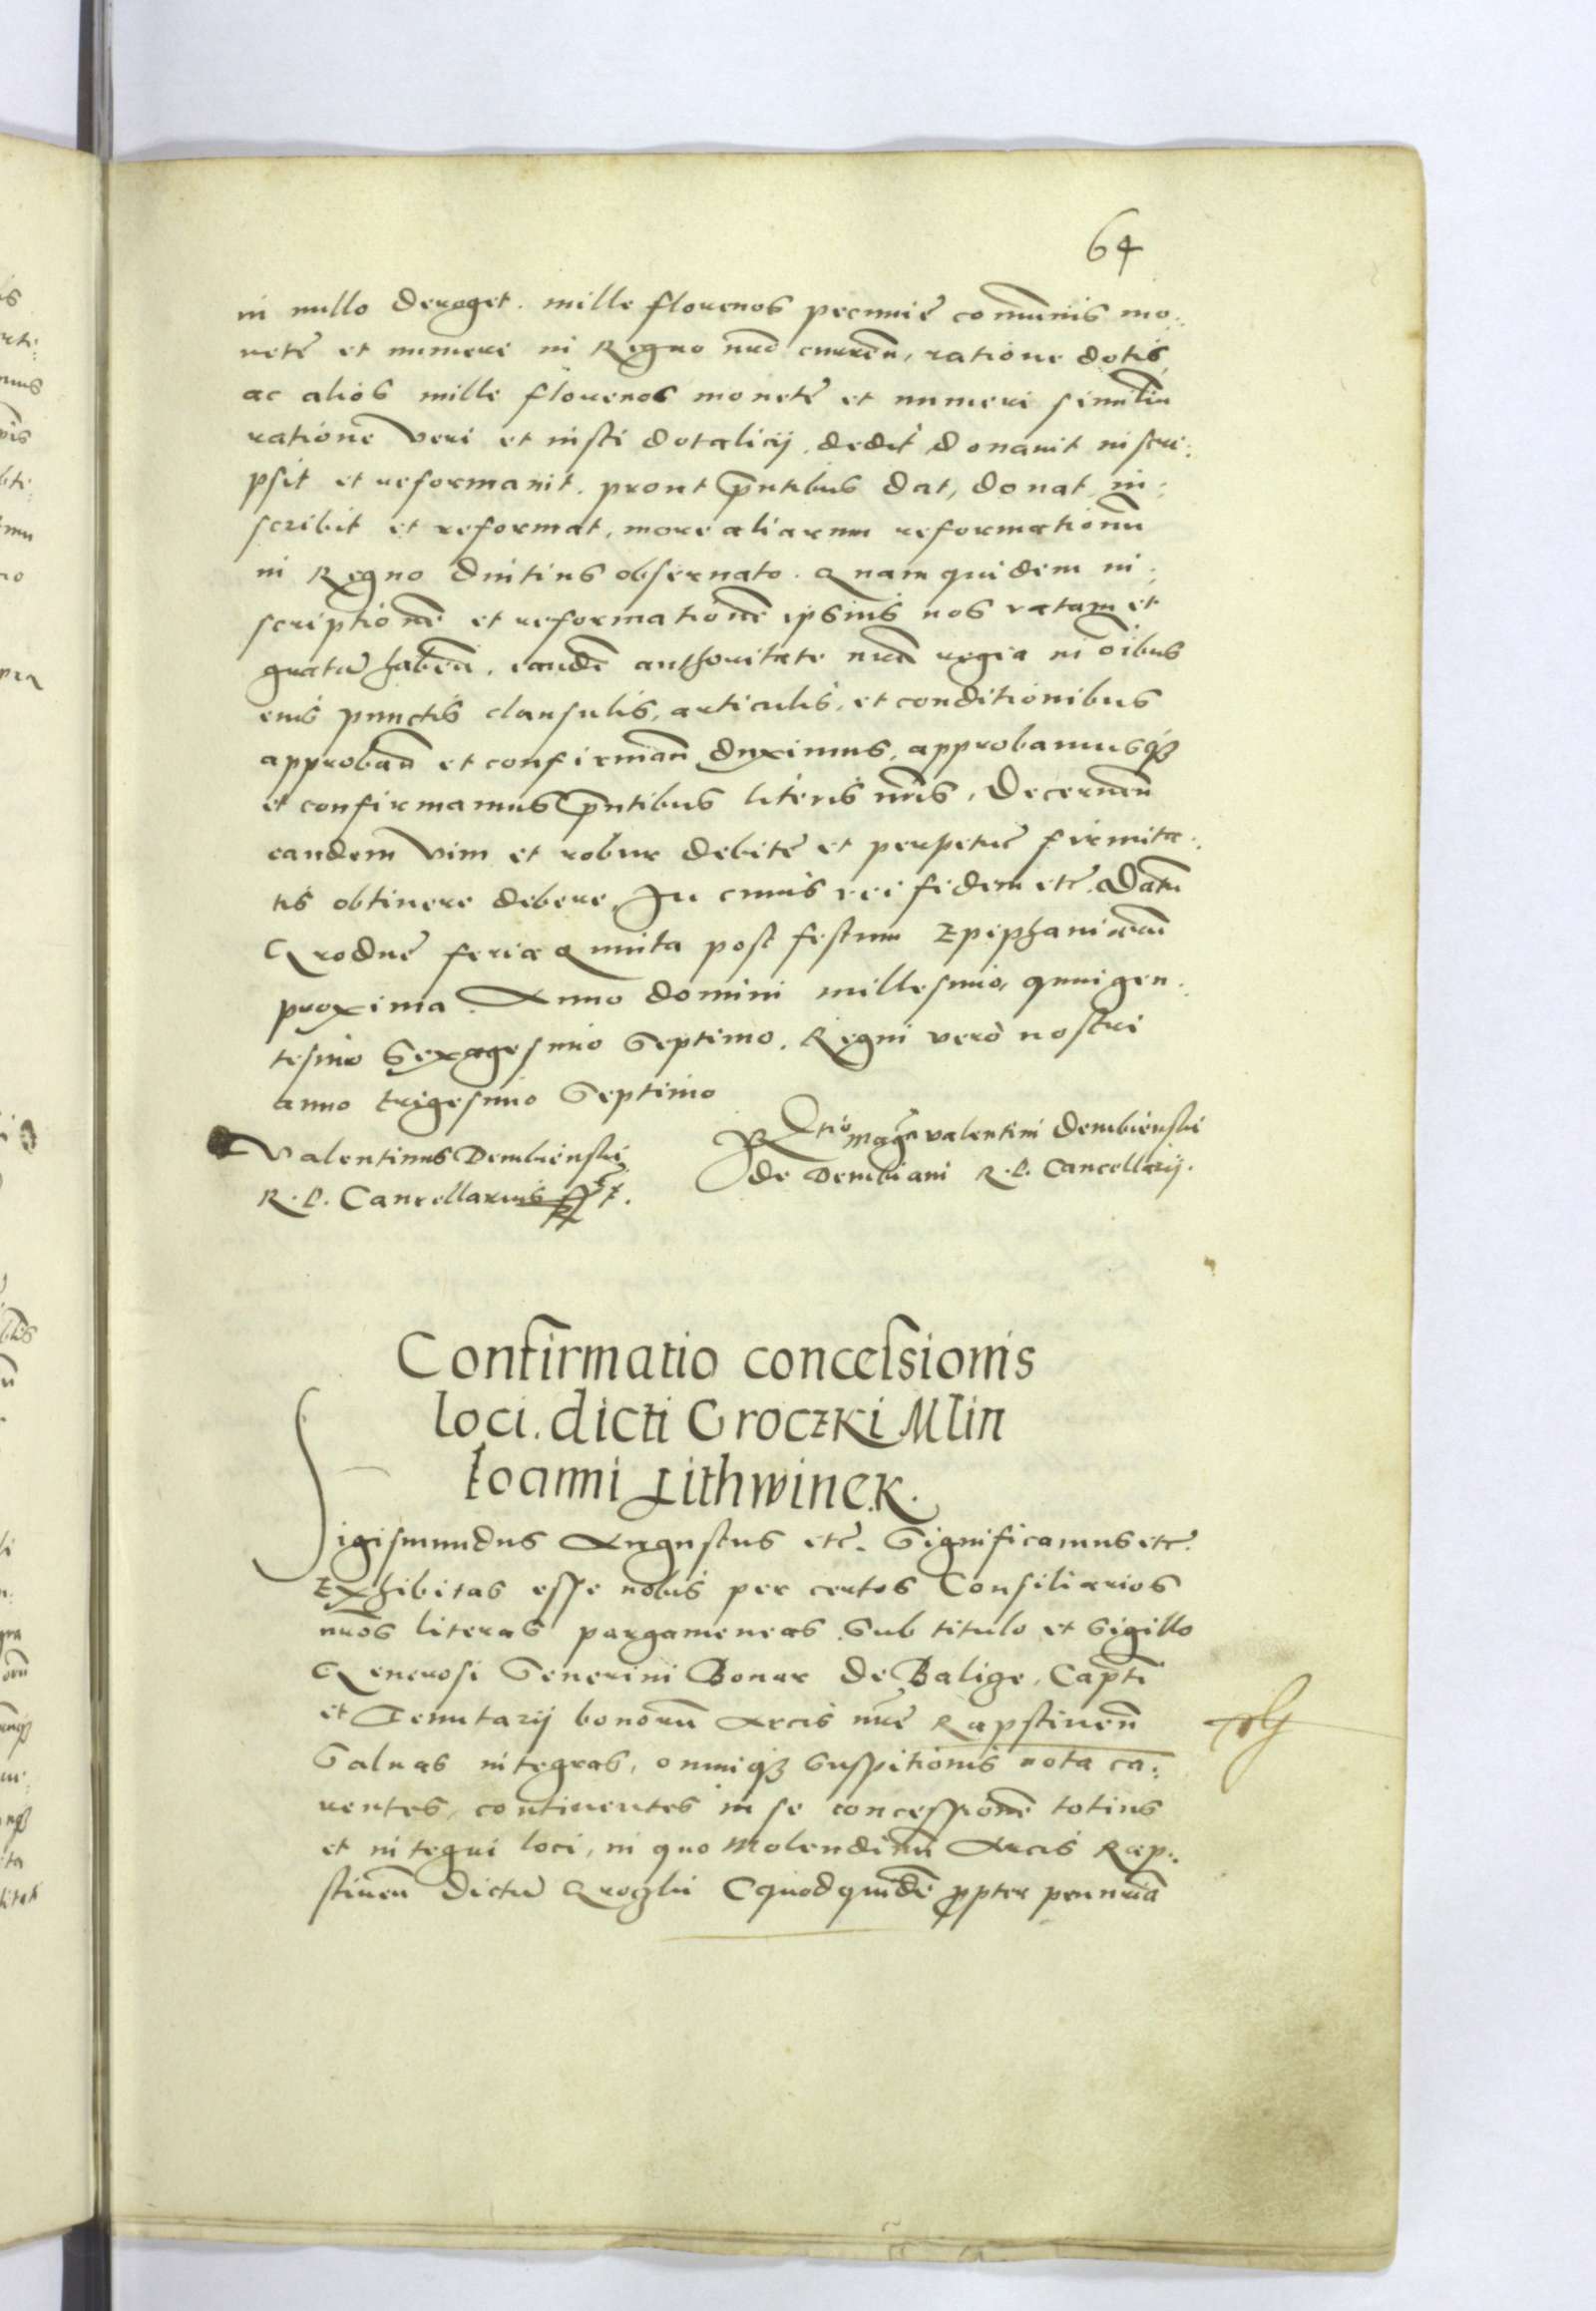 64
in nullo deroget. mille florenos pecuniȩ com̄unis mo:
netȩ et numeri in Regno nr̄o curren̄, ratione dotis,
ac alios mille florenos monetȩ et numeri similiū
ratione veri et iusti dotalicij, dedit donauit inscri:
psit et reformauit. prout p̄ntibus dat, donat in:
scribit et reformat, more aliarum reformationū
in Regno diutius obseruato. Quam quidem in:
scriptionē et reformationē ipsius nos ratam et
gratā haben̄. eandē authoritate nr̄a regia in oībus
eius punctis clausulis, articulis, et conditionibus
approban̄ et confirman̄ duximus, approbamusq3
et confirmamus p̄ntibus literis nr̄is, Decernen̄
eandem vim et robur debitȩ et perpetuȩ firmita:
tis obtinere debere. In cuius rei fidem etc. Datū
Grodnȩ feria quinta post festum Epiphaniarum
proxima. Anno domini millesimo, quingen:
tesimo Sexagesimo Septimo. Regni verò nostri
anno trigesimo Septimo
Valentinus Dembienski
R. P. Cancellarius sst.
Rtio Magci Valentini Dembienski
de Dembiani R. P. Cancellarij.
Confirmatio concessionis
loci dicti Groczki Mlin
Ioanni Lithwinek.
Sigismundus Augustus etc. Significamus etc.
Exhibitas esse nobis per certos Consiliarios
nr̄os literas pargameneas Sub titulo et Sigillo
Generosi Seuerini Bonar de Balige, Captī
et Tenutarij bonorū Arcis nr̄ȩ Rapstinen̄
Saluas integras, omniq3 Suspitionis nota ca:
rentes, continentes in se concessionē totius
et integri loci, in quo Molendinū Arcis Rap:
stinen̄ dictū Groczki (quodquidē propter penuriā